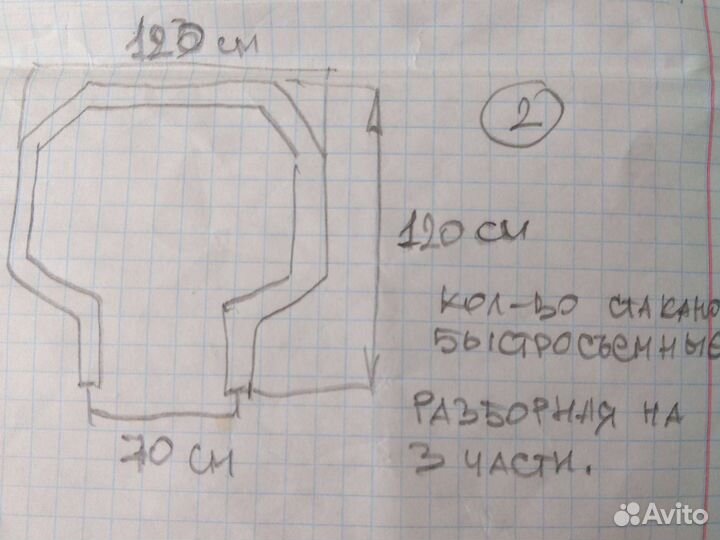 120 см
2
120 см
КОЛ-ВО СТАКАНО
БЫСТРОСЪЕМНЫЕ
РАЗБОРНАЯ НА
3 ЧАСТИ.
70 см
Avito